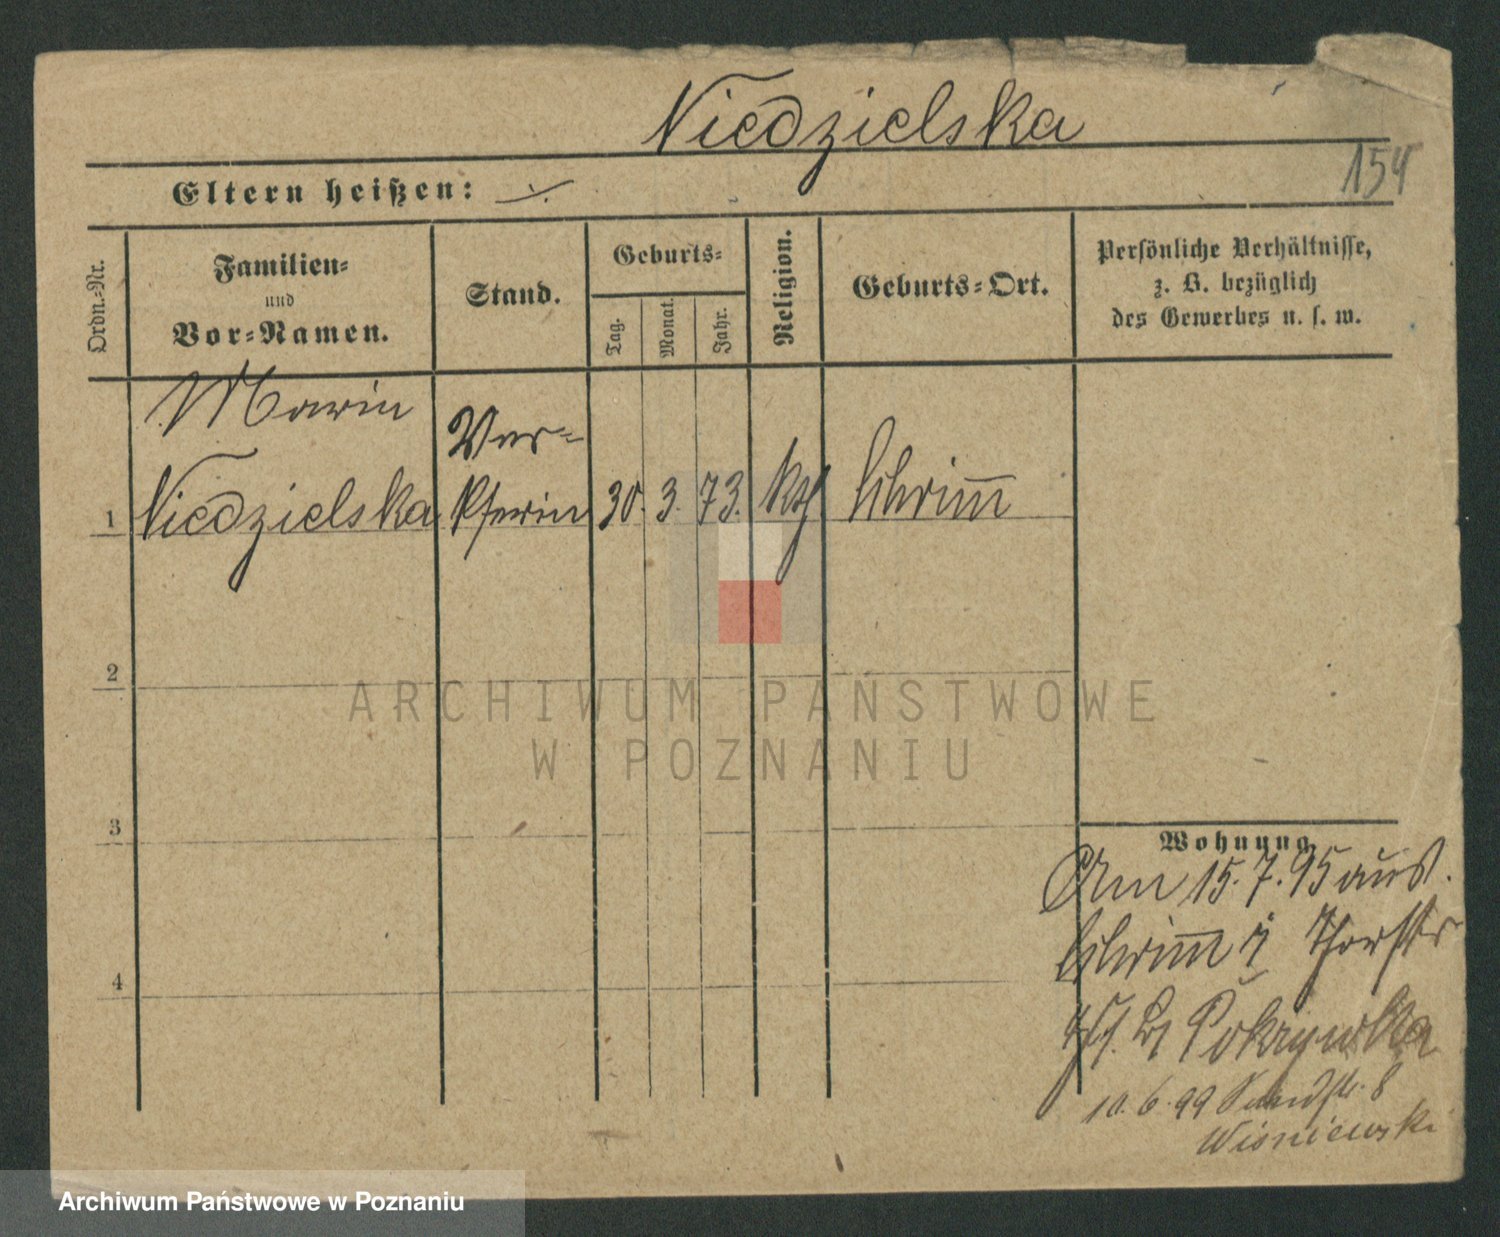 Niedzielska
154
Eltern heißen: ./.
Ordn.-Nr.
Familien-
und
Vor-Namen.
Stand.
Geburts-
Tag.
Monat.
Jahr.
Religion.
Geburts-Ort.
Persönliche Verhältnisse,
z. B. bezüglich
des Gewerbes u. s. w.
Marie
Niedzielska
Ver-
käuferin
1
30. 3. 73. kth Schrimm
2
3
4
Wohnung
Am 15.7.95 aus
Schrimm
Pokrywka
10.6.99 8
Wisniewski
ARCHIWUM PAŃSTWOWE
W POZNANIU
Archiwum Państwowe w Poznaniu